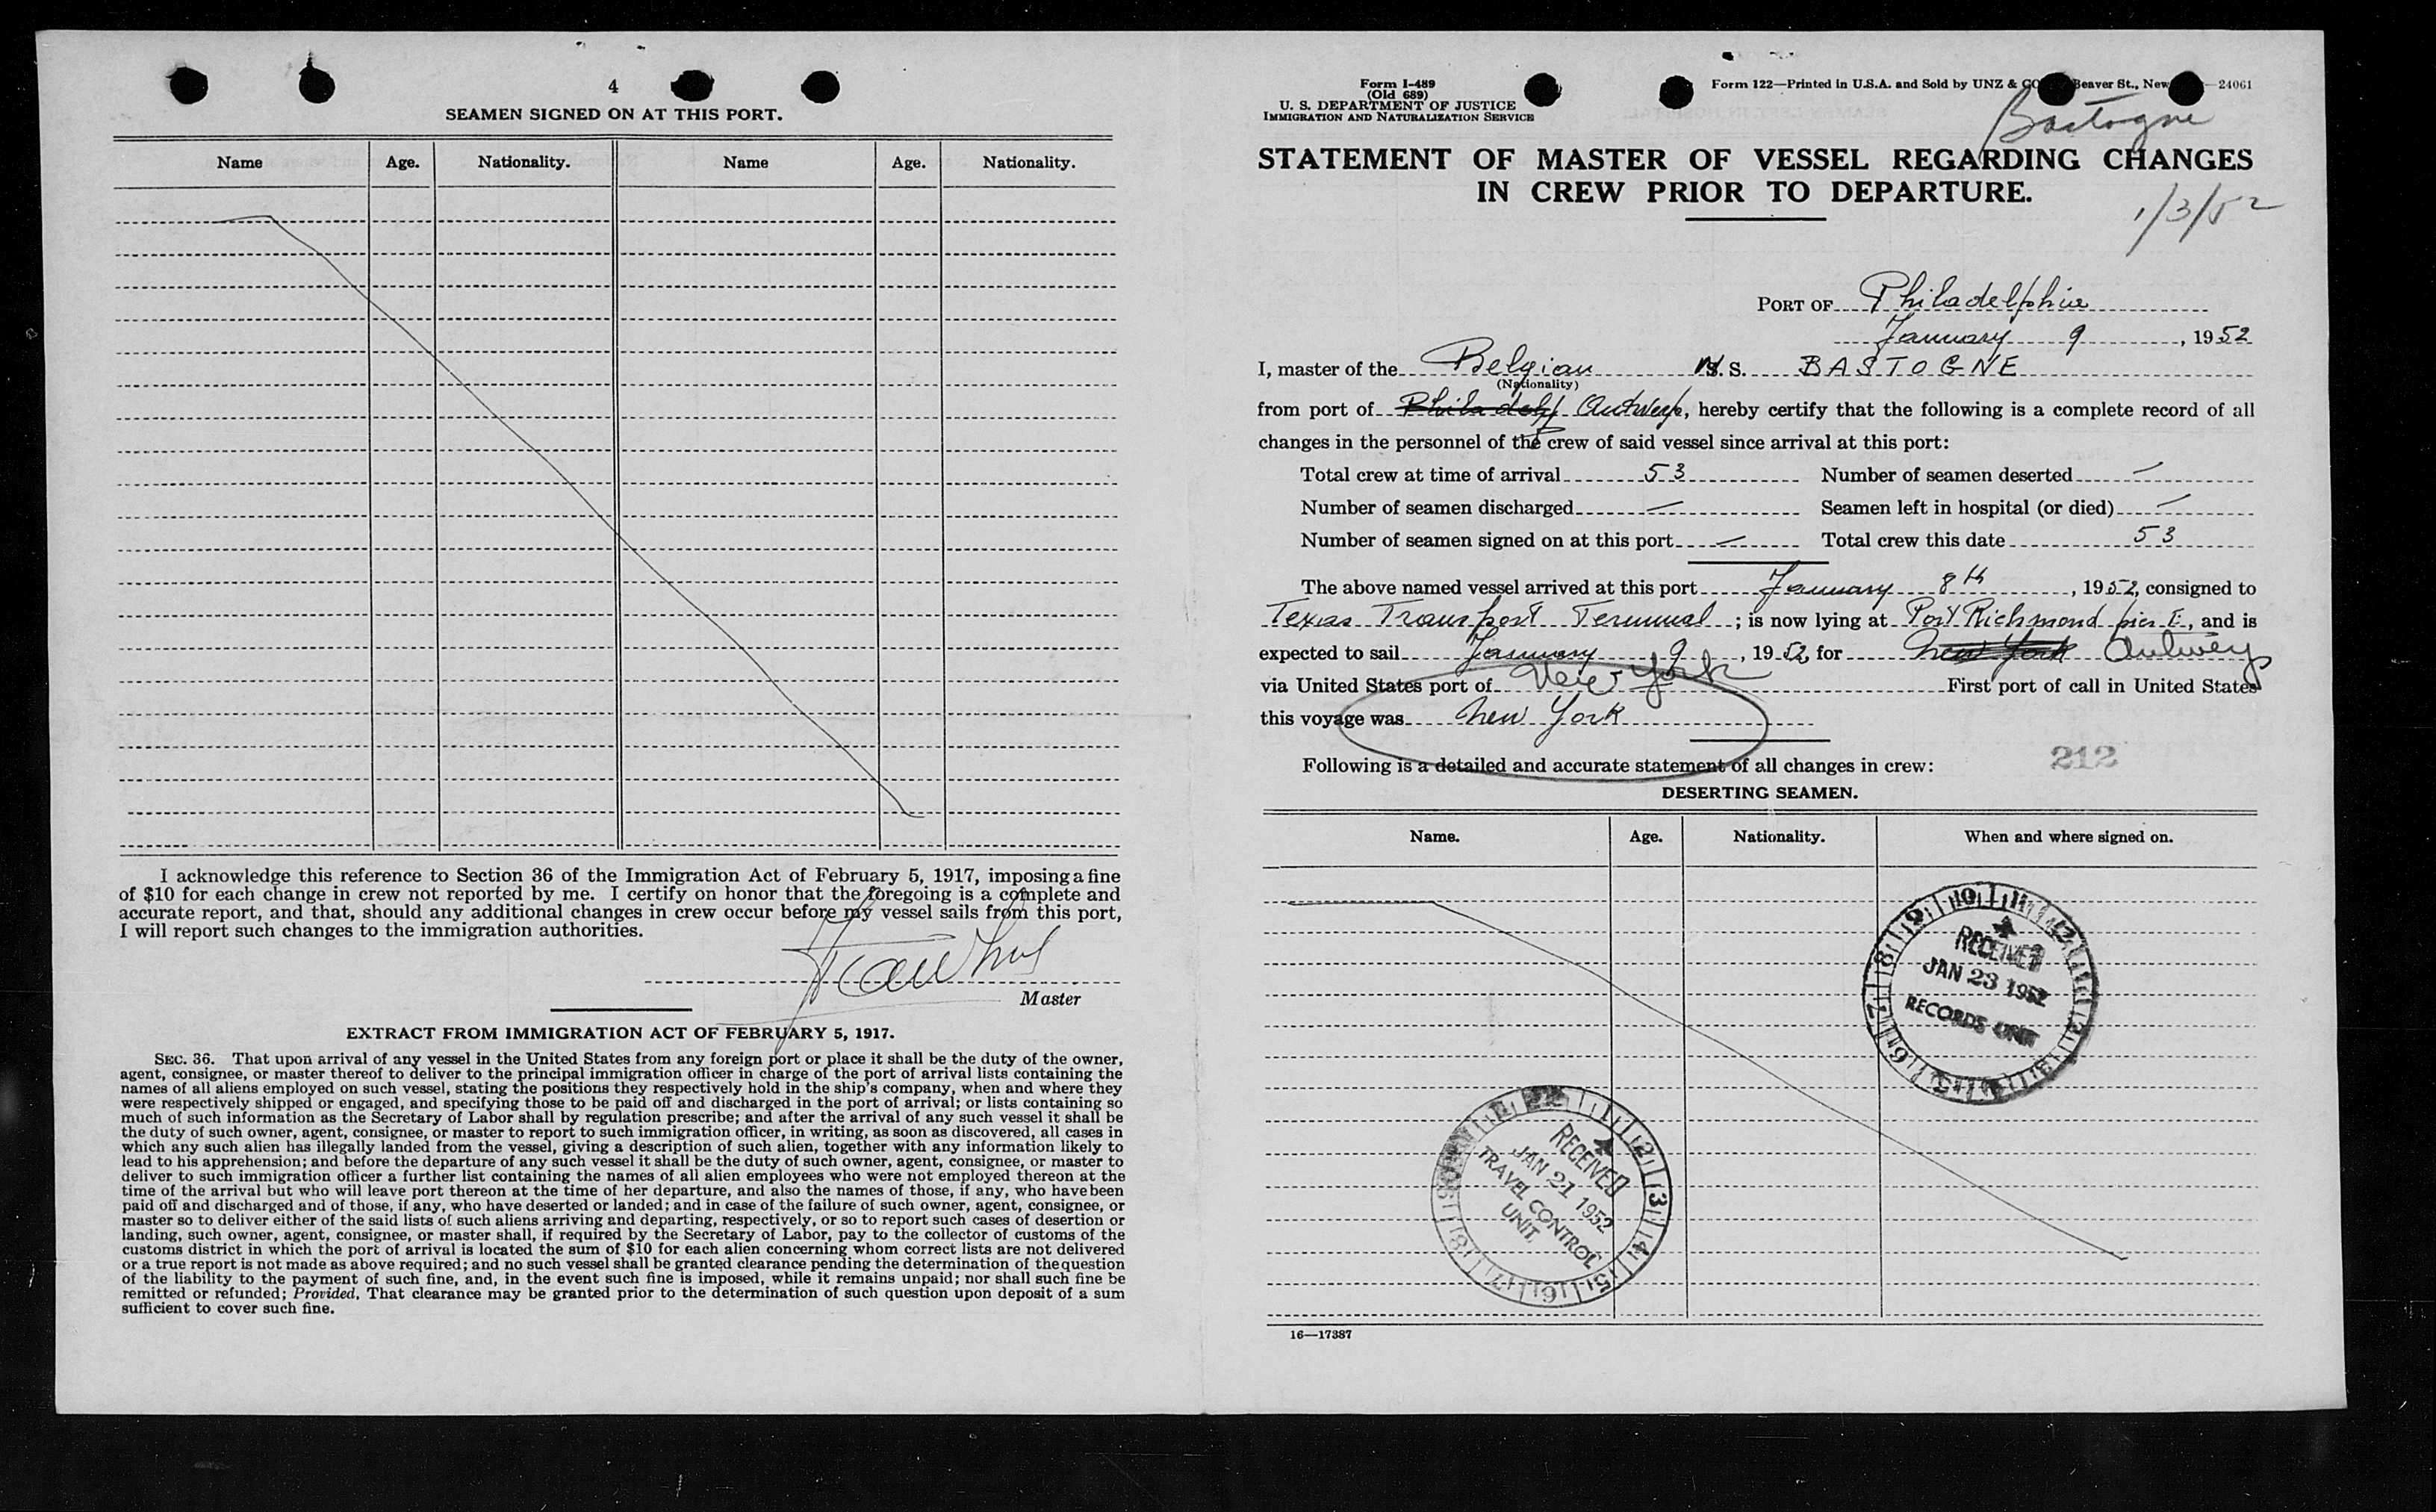 4
SEAMEN SIGNED ON AT THIS PORT.
Name Age. Nationality. Name Age. Nationality.
I acknowledge this reference to Section 36 of the Immigration Act of February 5, 1917, imposing a fine
of $10 for each change in crew not reported by me. I certify on honor that the foregoing is a complete and
accurate report, and that, should any additional changes in crew occur before my vessel sails from this port,
I will report such changes to the immigration authorities.
Master
EXTRACT FROM IMMIGRATION ACT OF FEBRUARY 5, 1917.
SEC. 36. That upon arrival of any vessel in the United States from any foreign port or place it shall be the duty of the owner,
agent, consignee, or master thereof to deliver to the principal immigration officer in charge of the port of arrival lists containing the
names of all aliens employed on such vessel, stating the positions they respectively hold in the ship's company, when and where they
were respectively shipped or engaged, and specifying those to be paid off and discharged in the port of arrival; or lists containing so
much of such information as the Secretary of Labor shall by regulation prescribe; and after the arrival of any such vessel it shall be
the duty of such owner, agent, consignee, or master to report to such immigration officer, in writing, as soon as discovered, all cases in
which any such alien has illegally landed from the vessel, giving a description of such alien, together with any information likely to
lead to his apprehension; and before the departure of any such vessel it shall be the duty of such owner, agent, consignee, or master to
deliver to such immigration officer a further list containing the names of all alien employees who were not employed thereon at the
time of the arrival but who will leave port thereon at the time of her departure, and also the names of those, if any, who have been
paid off and discharged and of those, if any, who have deserted or landed; and in case of the failure of such owner, agent, consignee, or
master so to deliver either of the said lists of such aliens arriving and departing, respectively, or so to report such cases of desertion or
landing, such owner, agent, consignee, or master shall, if required by the Secretary of Labor, pay to the collector of customs of the
customs district in which the port of arrival is located the sum of $10 for each alien concerning whom correct lists are not delivered
or a true report is not made as above required; and no such vessel shall be granted clearance pending the determination of the question
of the liability to the payment of such fine, and, in the event such fine is imposed, while it remains unpaid; nor shall such fine be
remitted or refunded; Provided, That clearance may be granted prior to the determination of such question upon deposit of a sum
sufficient to cover such fine.
Form I-489
(Old 689)
U. S. DEPARTMENT OF JUSTICE
IMMIGRATION AND NATURALIZATION SERVICE
Form 122—Printed in U.S.A. and Sold by UNZ & CO Beaver St., New —24061
Bastogne
STATEMENT OF MASTER OF VESSEL REGARDING CHANGES
IN CREW PRIOR TO DEPARTURE.
1/3/52
PORT OF Philadelphia
January 9, 1952
I, master of the Belgian M. S. BASTOGNE
(Nationality)
from port of Philadelp Antwerp, hereby certify that the following is a complete record of all
changes in the personnel of the crew of said vessel since arrival at this port:
Total crew at time of arrival 53 Number of seamen deserted —
Number of seamen discharged — Seamen left in hospital (or died) —
Number of seamen signed on at this port — Total crew this date 53
The above named vessel arrived at this port January 8th, 1952, consigned to
Texas Transport Terminal; is now lying at Port Richmond pier E, and is
expected to sail January 9, 1952, for New York Antwerp
via United States port of New York First port of call in United States
this voyage was New York
Following is a detailed and accurate statement of all changes in crew:
212
DESERTING SEAMEN.
Name. Age. Nationality. When and where signed on.
RECEIVED
JAN 23 1952
RECORDS UNIT
RECEIVED
JAN 21 1952
TRAVEL CONTROL
UNIT
16—17387